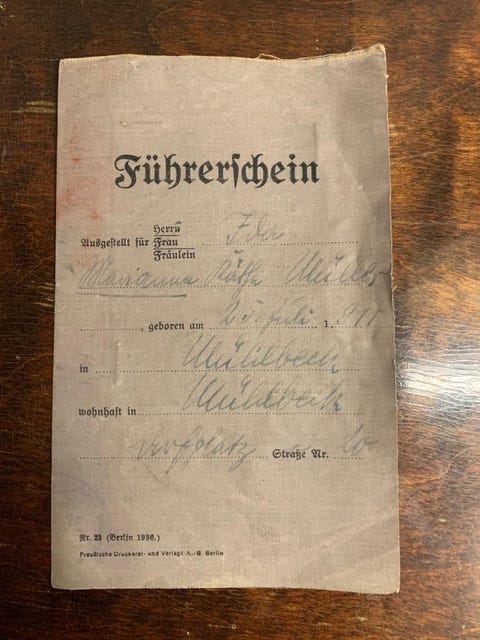 Führerschein
Herrn
Ausgestellt für Frau Ida
Fräulein
Marianne Käthe Müller
, geboren am 25. Juli 1.911
in Mühlbeck
wohnhaft in Mühlbeck
Straße Nr. 20
Nr. 23 (Berlin 1936.)
Preußische Druckerei- und Verlags-A.-G. Berlin